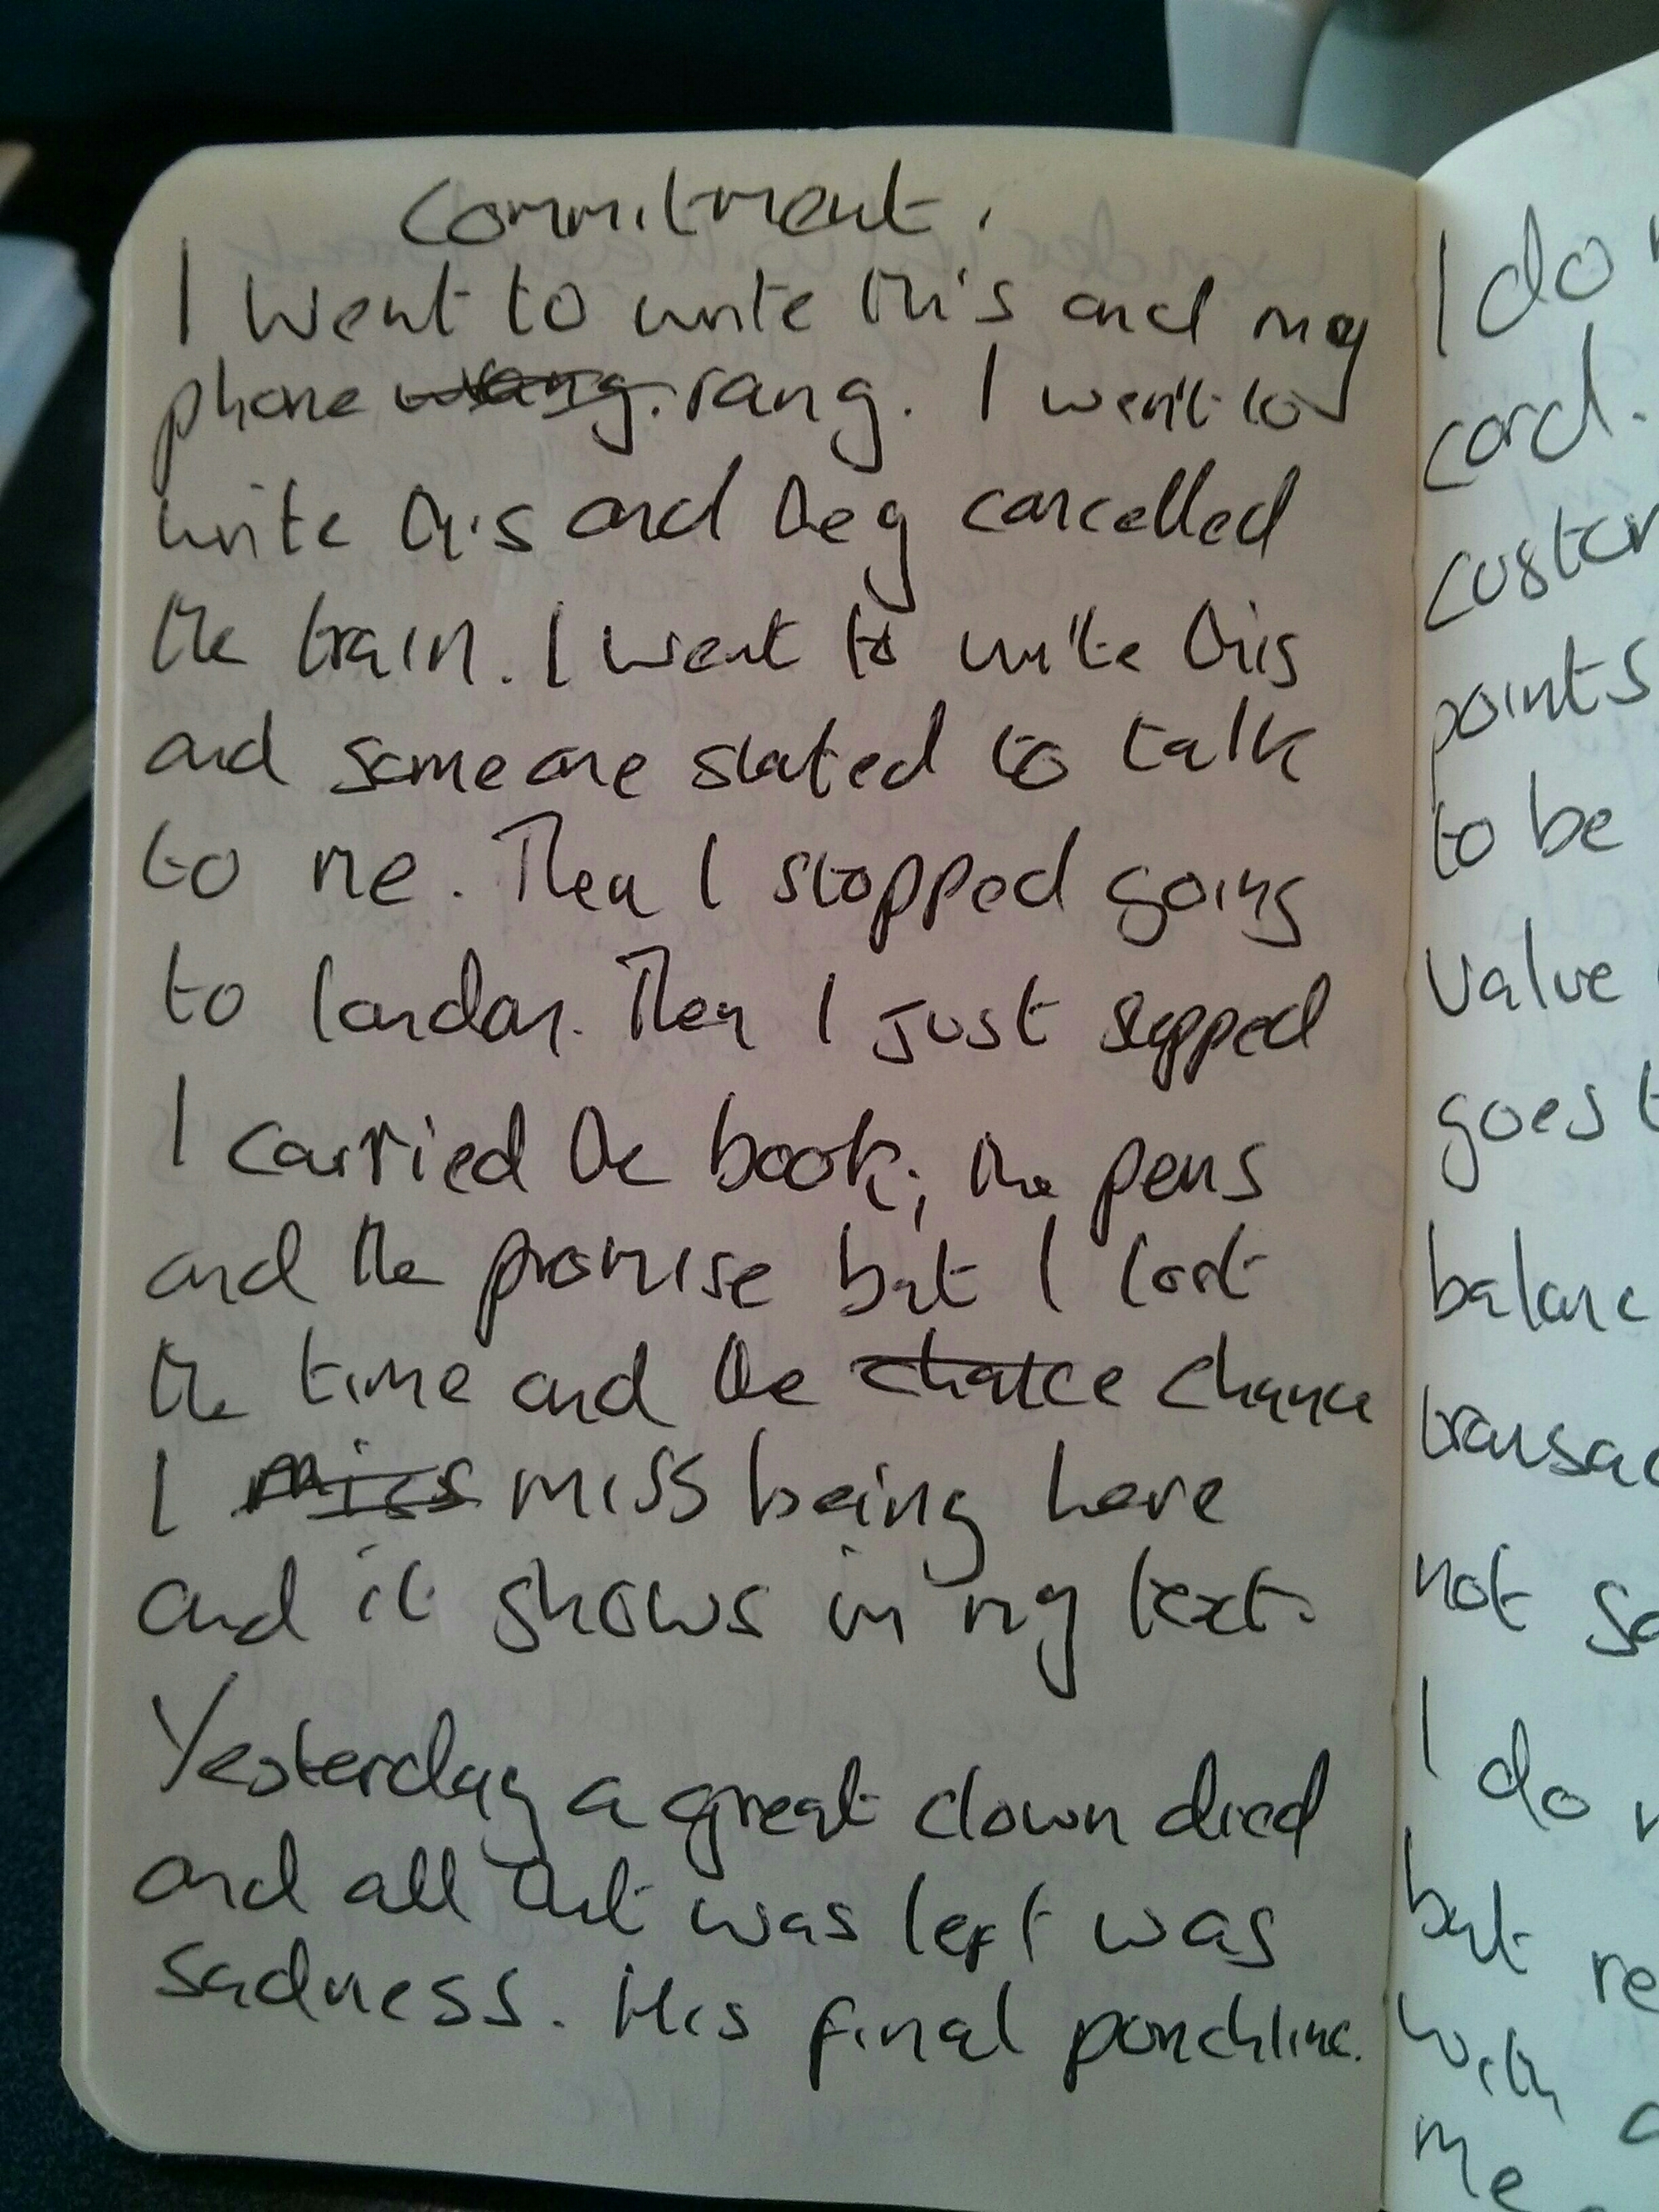 Commitment.
I went to write this and my
phone wrang. rang. I went to
write this and they cancelled
the train. I went to write this
and someone stated to talk
to me. Then I stopped going
to london. Then I just stopped
I carried the book, the pens
and the promise but I lost
the time and the chatce chance
I miss miss being here
and it shows in my text.
Yesterday a great clown died
and all that was left was
sadness. His final punchline.
I do
card.
points
to be
value
goes t
balanc
transac
not so
I do n
but re
with a
me